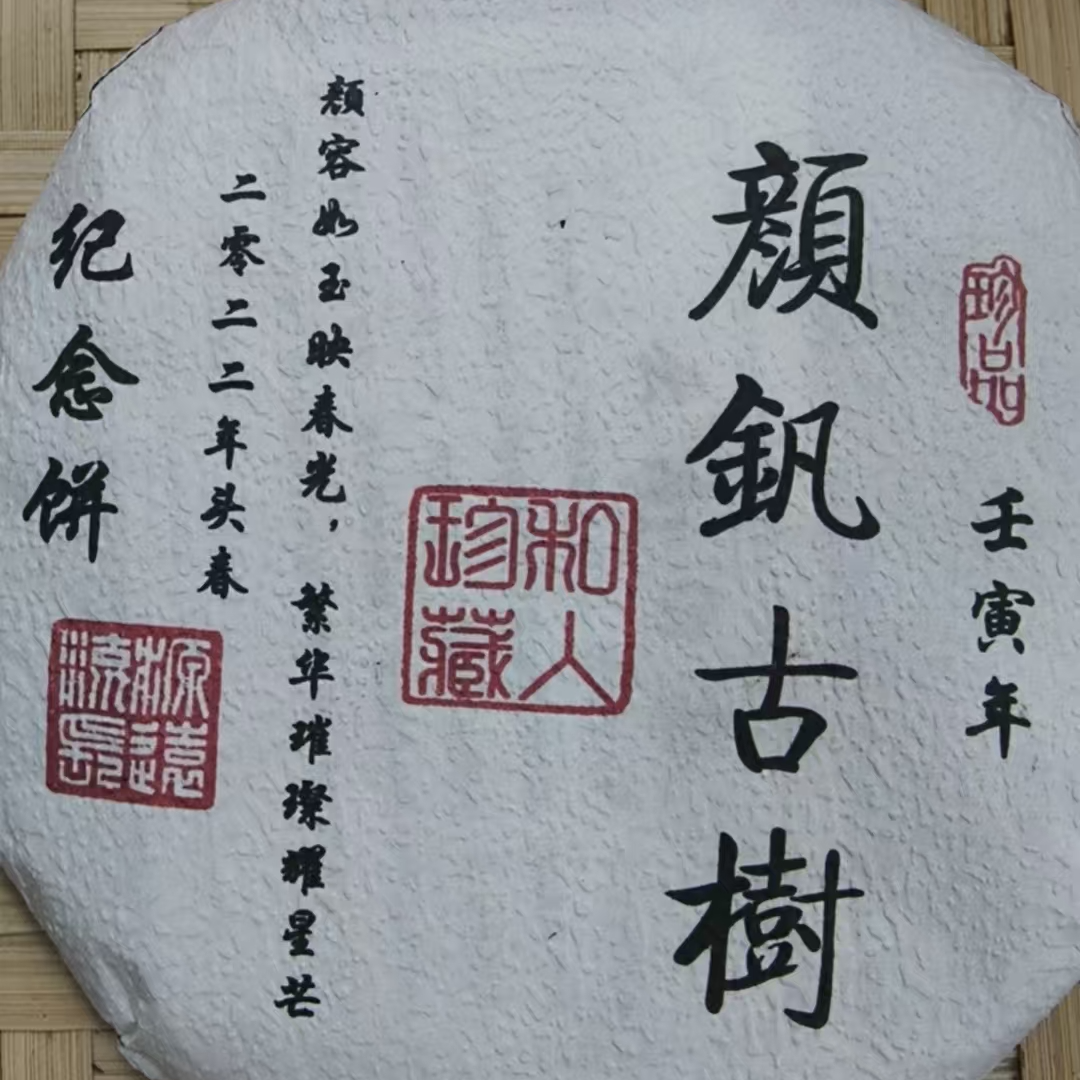 珍品
壬寅年
顔釩古樹
和人珍藏
顔容如玉映春光，繁华璀璨耀星芒
二零二二年头春
纪念饼